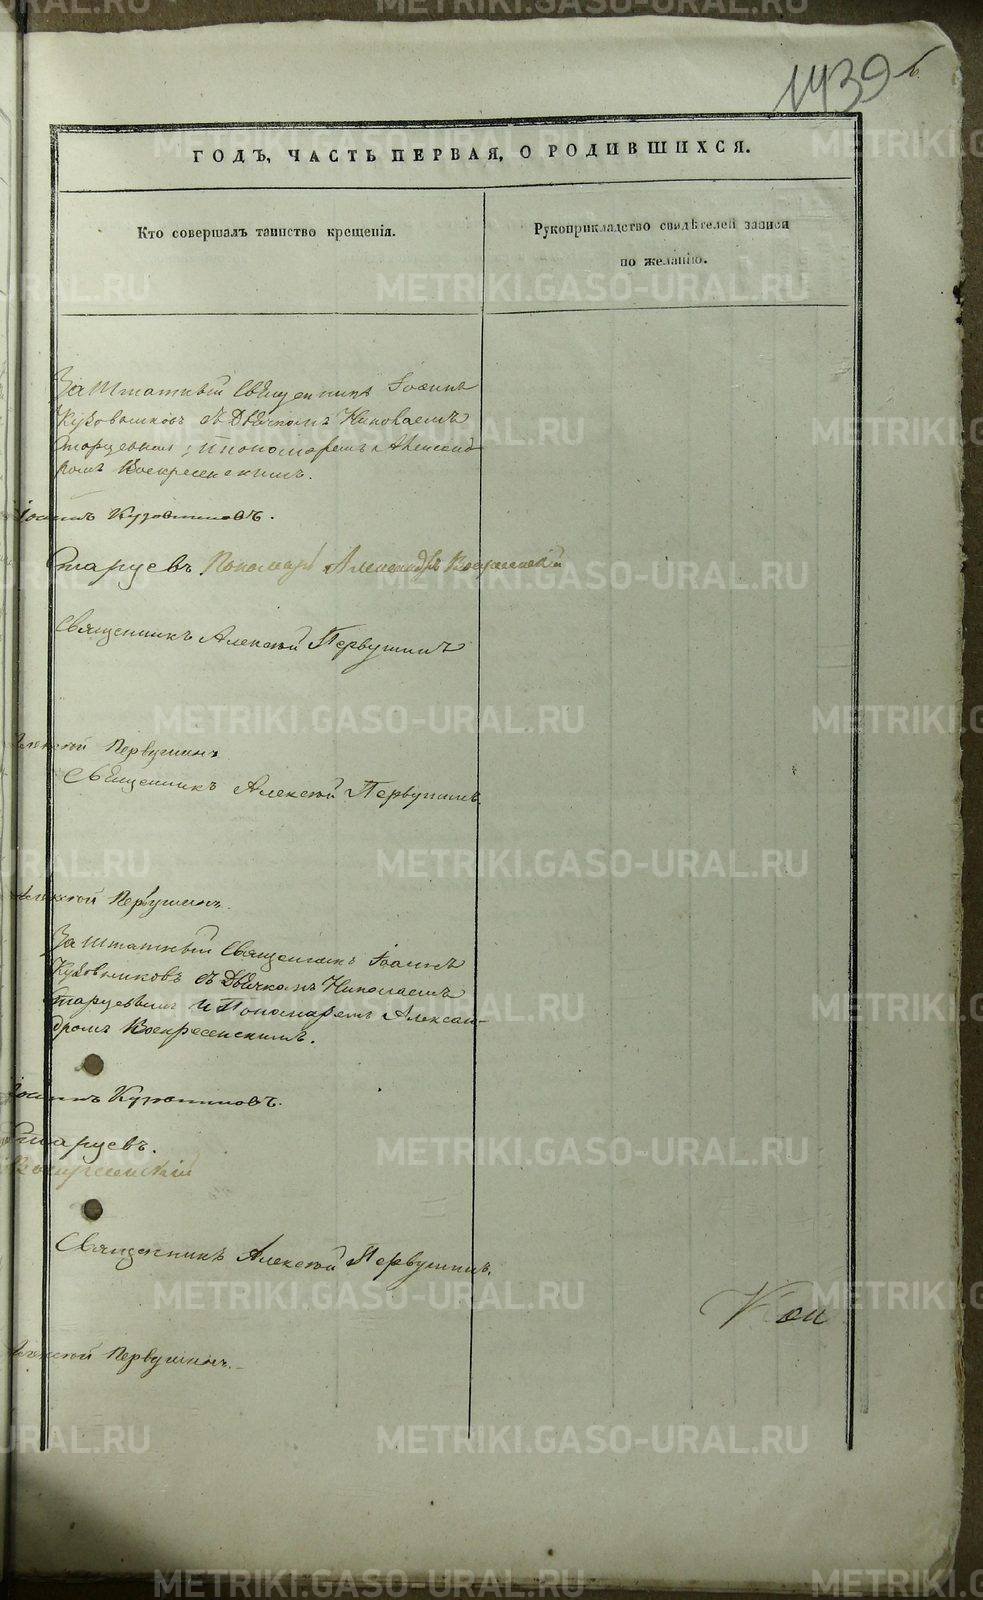 1439
ГОДЪ, ЧАСТЬ ПЕРВАЯ, О РОДИВШИХСЯ.
Кто совершалъ таинство крещенія.
Рукоприкладство свидѣтелей записи
по желанію.
Заштатный Священникъ Іоаннъ
Кузовниковъ съ Дьячкомъ Николаемъ
Старцевымъ, и пономаремъ Александ
ромъ Воскресенскимъ.
Іоаннъ Кузовниковъ.
Старцевъ Пономарь Александръ Воскресенскій
Священникъ Алексѣй Первушинъ
Алексѣй Первушинъ
Священникъ Алексѣй Первушинъ
Алексѣй Первушинъ.
Заштатный Священникъ Іоаннъ
Кузовниковъ съ Дьячкомъ Николаемъ
Старцевымъ и Пономаремъ Алексан-
дромъ Воскресенскимъ.
Іоаннъ Кузовниковъ.
Старцевъ.
Воскресенскій
Священникъ Алексѣй Первушинъ.
Алексѣй Первушинъ.
METRIKI.GASO-URAL.RU